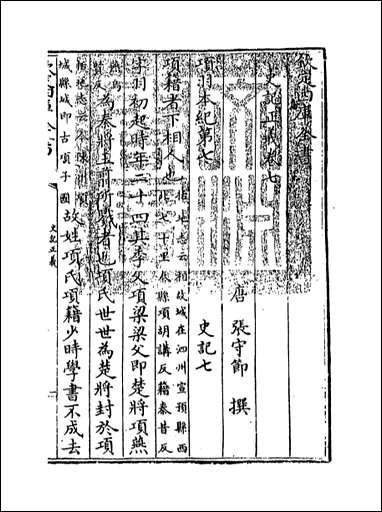 欽定四庫全書
史記正義卷七
唐 張守節 撰
項羽本紀第七 史記七
項籍者下相人也 括地志云相故城在泗州宣預縣西
北七十里 縣項胡講反籍秦昔反
字羽初起時年二十四其季父項梁梁父即楚將項燕
燕烏
賢反 為秦將王翦所戮者也項氏世世為楚將封於項
括地志云今陳州項
城縣城即古項子國 故姓項氏項籍少時學書不成去
史記正義